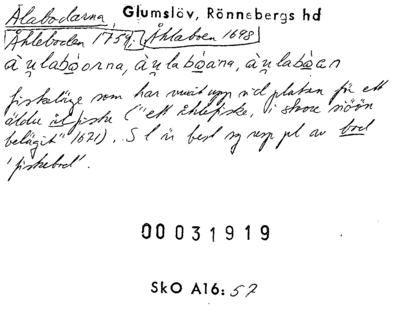 Ålabodarna, Glumslöv, Rönnebergs hd
Åhleboden 1757; Åhlaboen 1698
fiskeläge som har vuxit upp vid platsen för ett
äldre ålfiske ("ett åhlefiske, i stora siöön
belägit" 1621). S l är best sg resp pl av bod
'fiskebod'.
00031919
SkO A16: 57